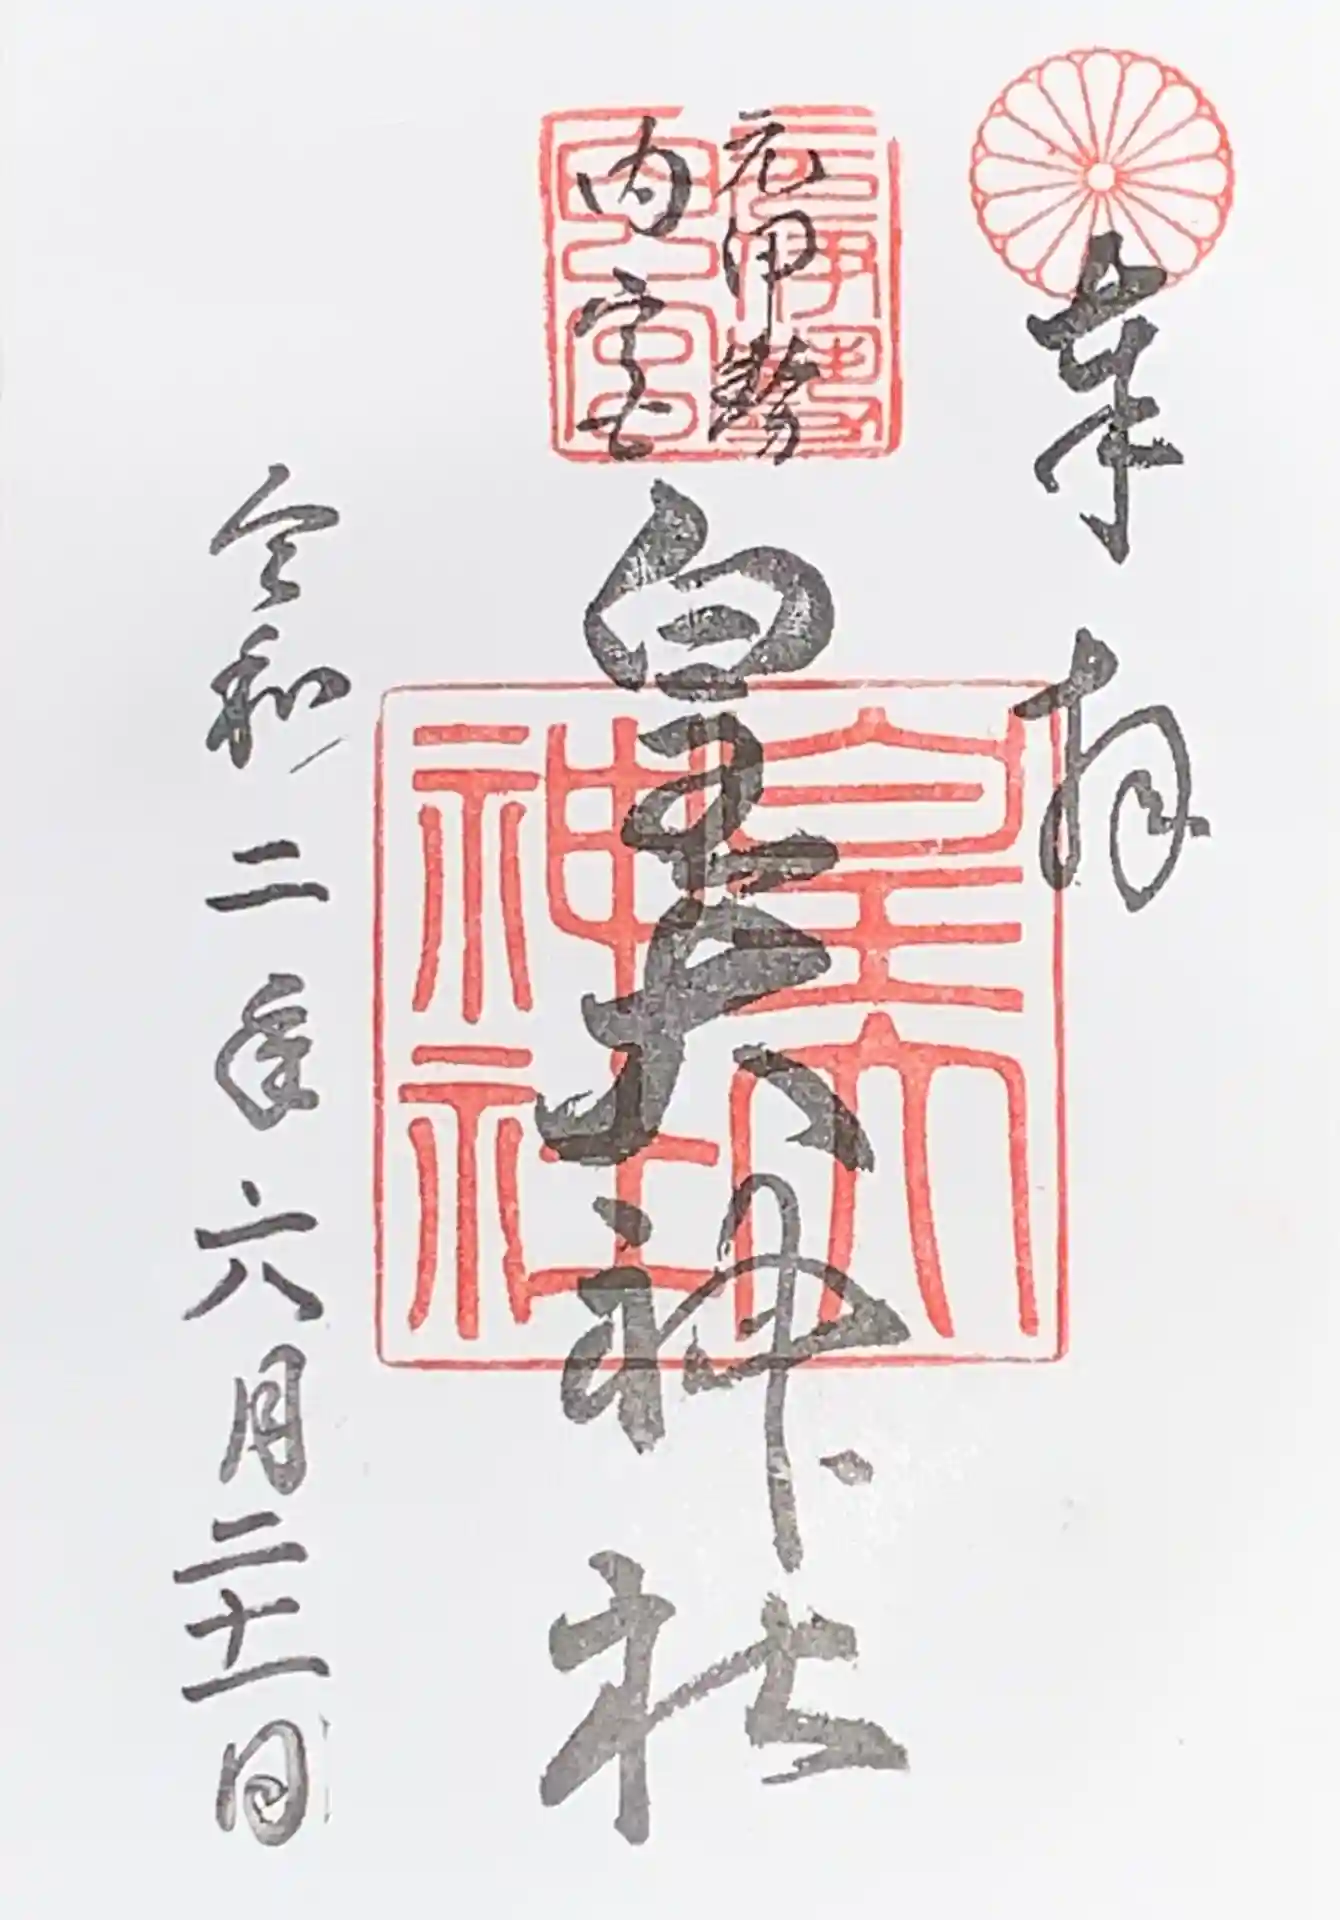 奉拝
元伊勢
内宮
皇大神社
元伊勢
内宮
皇大
神社
令和二年六月二十一日